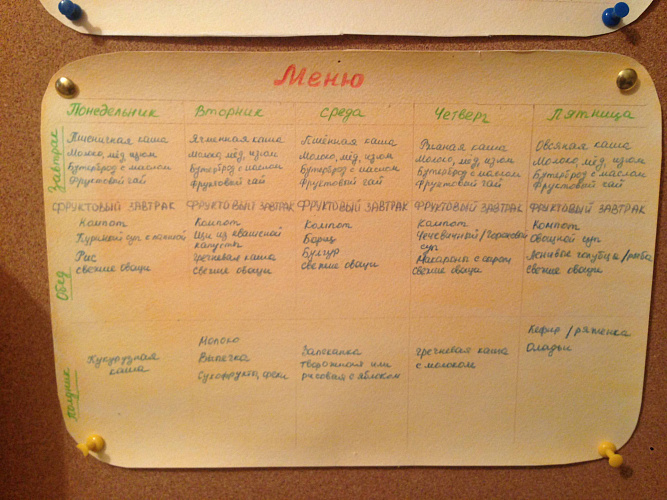 Меню
Понедельник Вторник Среда Четверг Пятница
Завтрак
Пшеничная каша
Молоко, мёд, изюм
Бутерброд с маслом
Фруктовый чай
Ячменная каша
Молоко, мёд, изюм
Бутерброд с маслом
Фруктовый чай
Пшённая каша
Молоко, мёд, изюм
Бутерброд с маслом
Фруктовый чай
Ржаная каша
Молоко, мёд, изюм
Бутерброд с маслом
Фруктовый чай
Овсяная каша
Молоко, мёд, изюм
Бутерброд с маслом
Фруктовый чай
ФРУКТОВЫЙ ЗАВТРАК ФРУКТОВЫЙ ЗАВТРАК ФРУКТОВЫЙ ЗАВТРАК ФРУКТОВЫЙ ЗАВТРАК ФРУКТОВЫЙ ЗАВТРАК
Обед
Компот
Куриный суп с
Рис
свежие овощи
Компот
Щи из квашеной
капусты
гречневая каша
свежие овощи
Компот
Борщ
Булгур
свежие овощи
Компот
Чечевичный/гороховый
суп
Макароны с сыром
свежие овощи
Компот
Овощной суп
Ленивые голубцы/рыба
свежие овощи
полдник
Кукурузная
каша
Молоко
Выпечка
Сухофрукты, орехи
Запеканка
творожная или
рисовая с яблоком
гречневая каша
с молоком
Кефир/ряженка
Оладьи